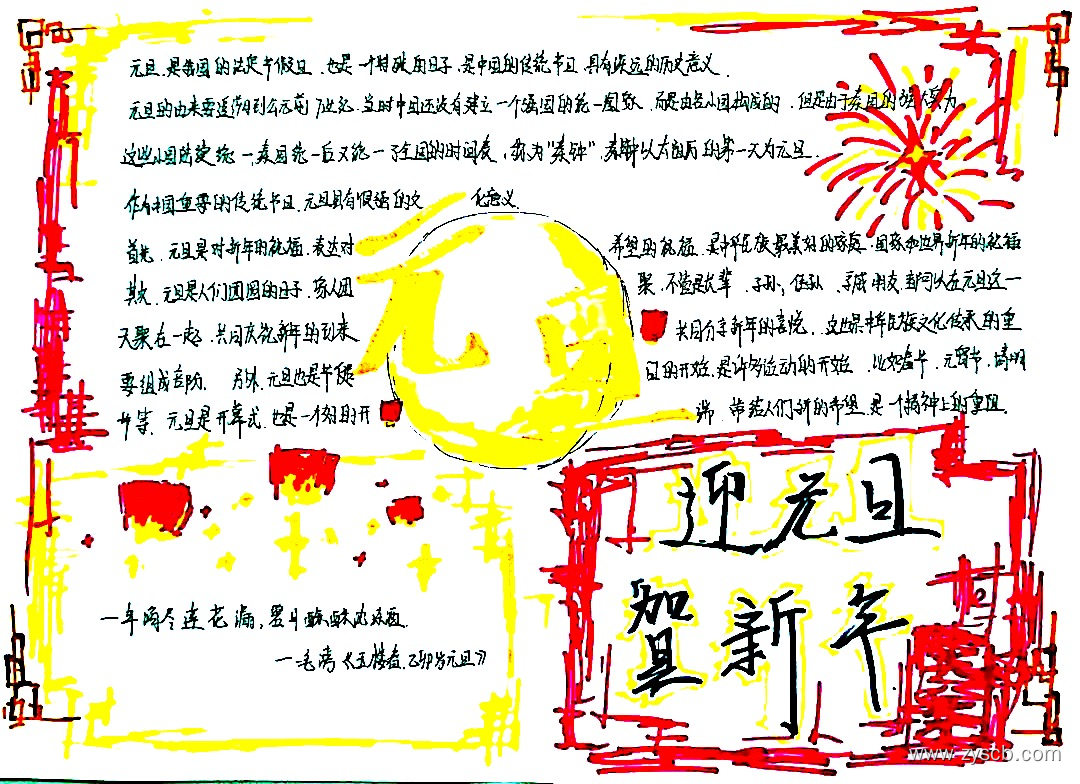 元旦,是我国的法定节假日,也是一个特殊的日子,是中国的传统节日,具有深远的历史意义.
元旦的由来要追溯到公元前7世纪,当时中国还没有建立一个强国的统一国家,而是由各小国构成的,但是由于秦国的强大,为
这些小国陆续统一,秦国统一后又统一了全国的时间表,称为"秦钟",秦钟以太阳历的第一天为元旦.
作为中国重要的传统节日,元旦具有很强的文化意义.
首先,元旦是对新年的祝福,表达对
希望的祝福,是中华民族最美好的,国家和世界新年的祝福
其次,元旦是人们团圆的日子,家人团
聚,不管是长辈、子孙、亲戚朋友,都可以在元旦这一
天聚在一起,共同庆祝新年的到来
共同分享新年的喜悦,这也是中华民族文化传承的重
要组成部分. 另外,元旦也是节健
日的开始,是许多运动的开始,比如春节、元宵节、清明
节等,元旦是开幕式,也是一个的开
端,带给人们新的希望,是一个精神上的重阻.
元旦
一年滴尽莲花漏,翠井酴酥沉冻酒.
——毛滂《玉楼春·己卯岁元旦》
迎元旦
贺新年
www.zyscb.com